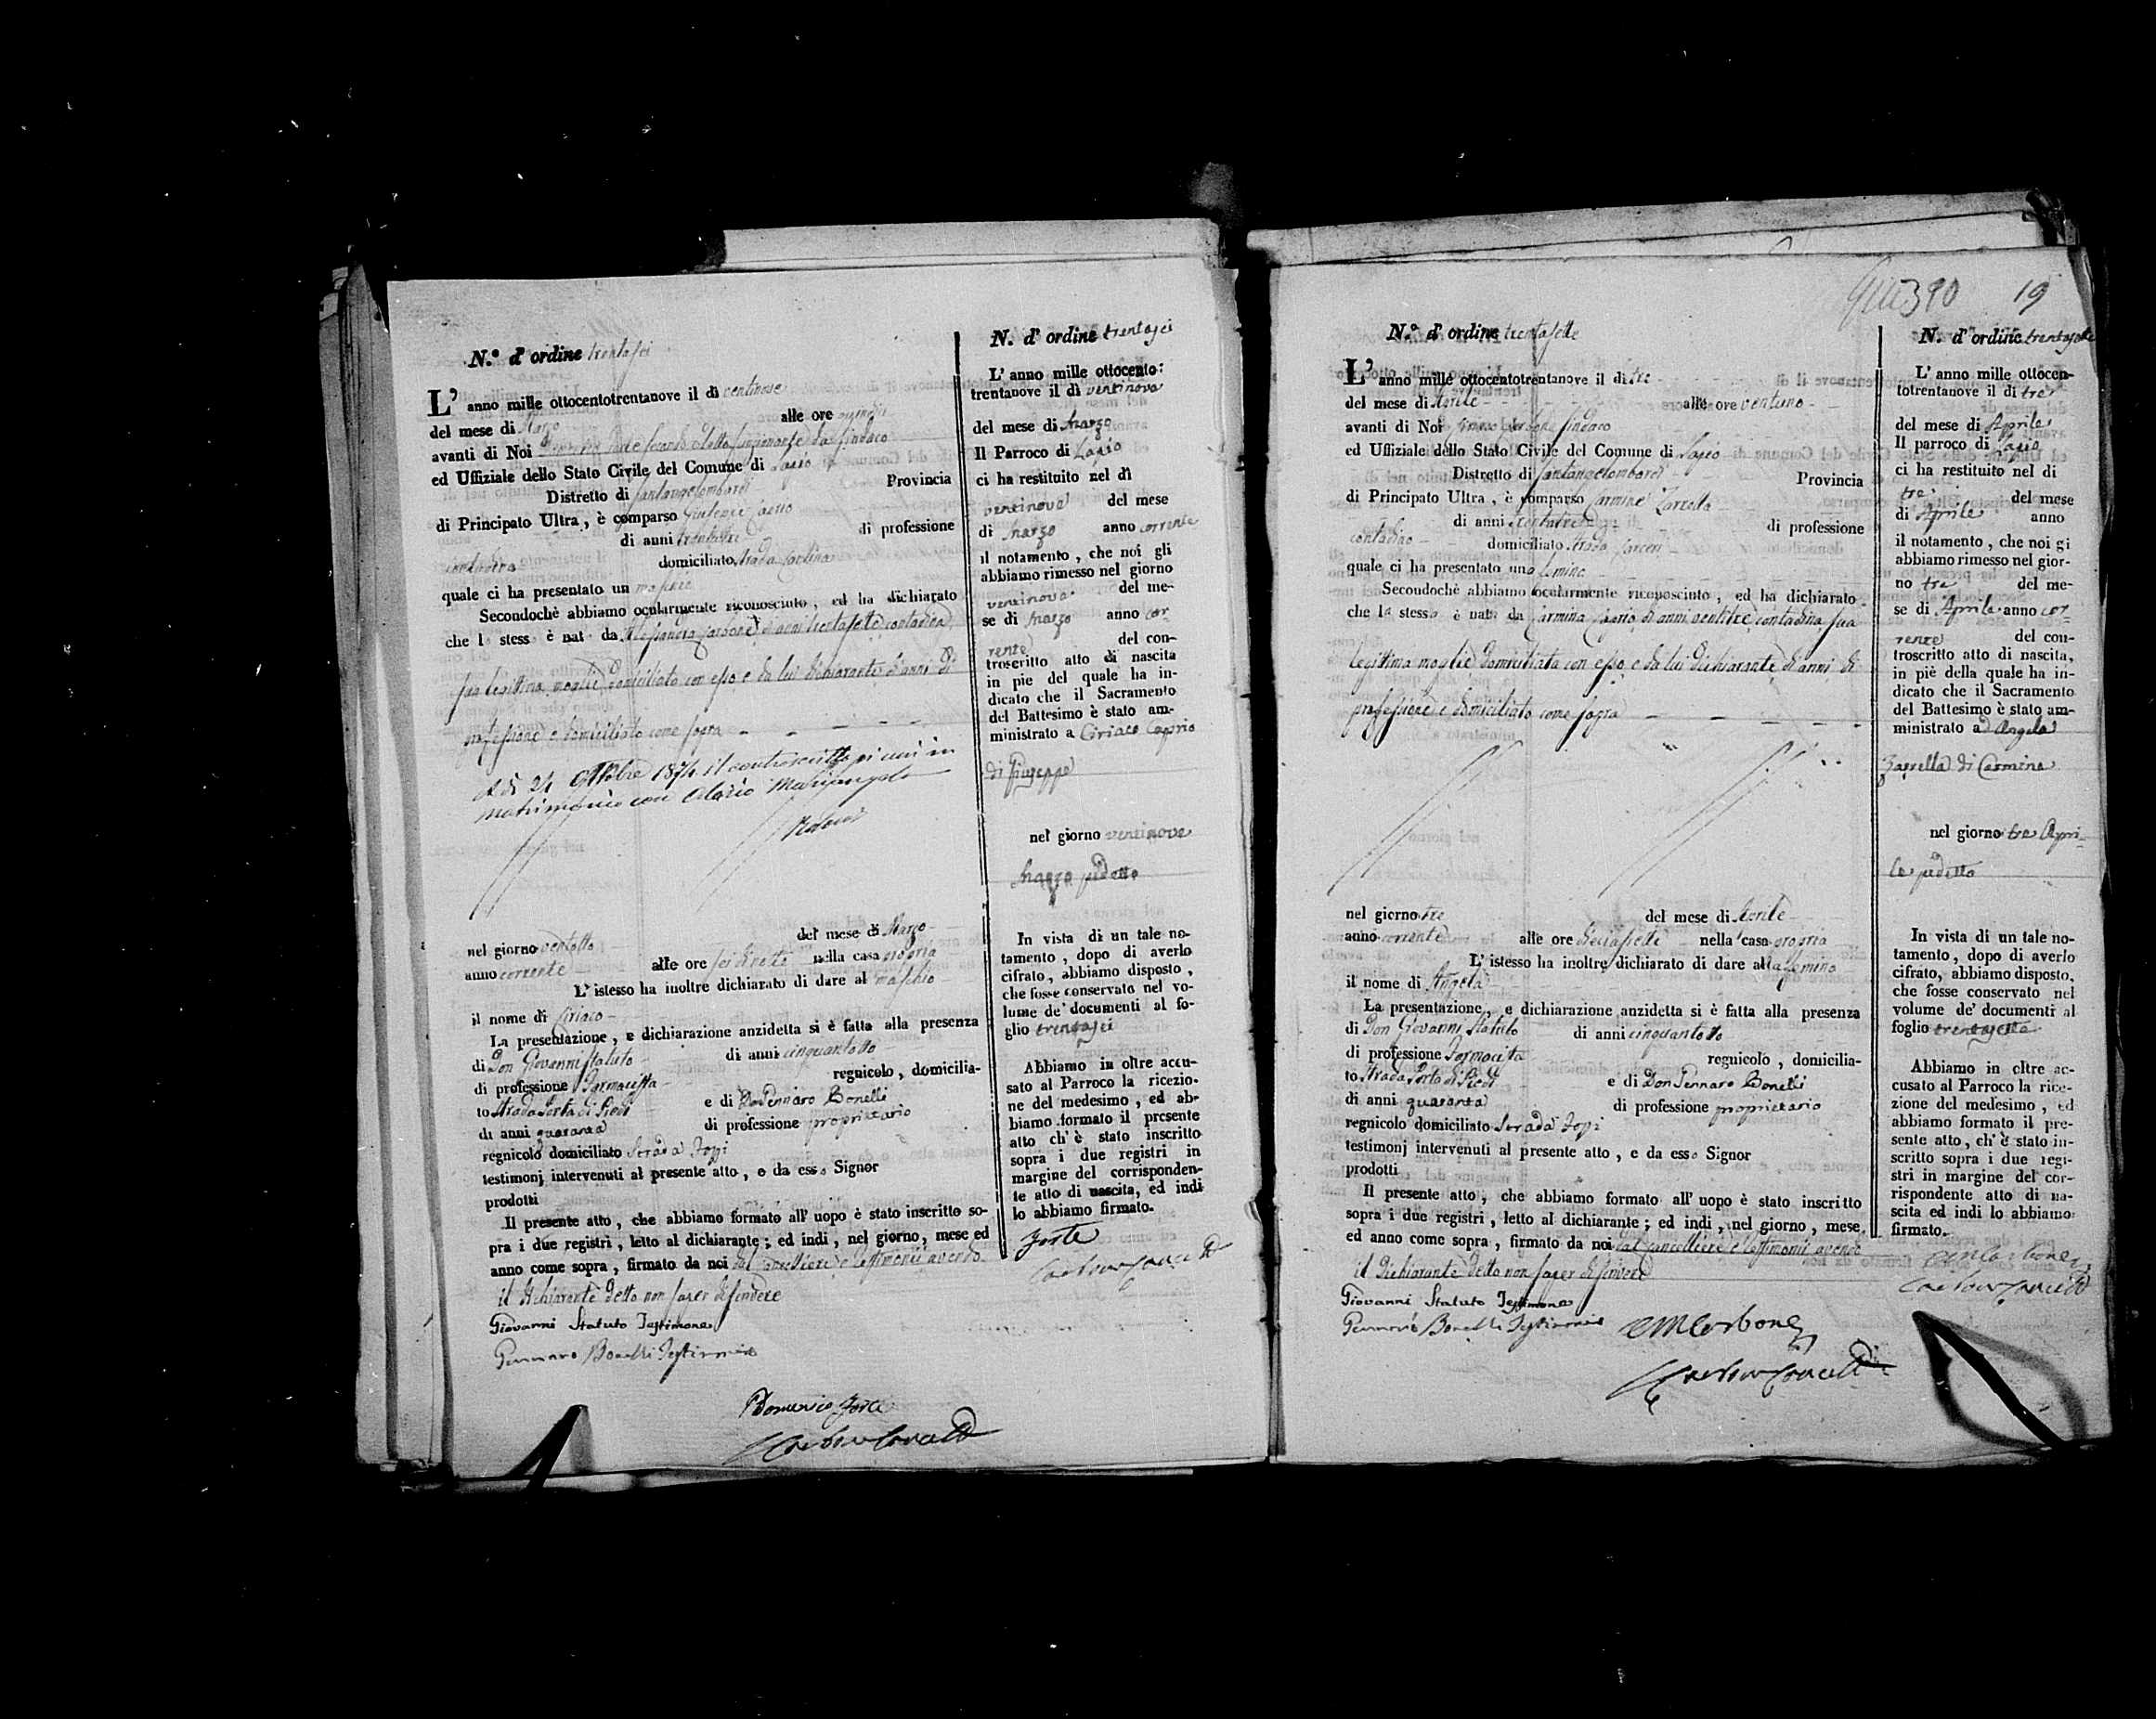 N.° d' ordine trentasei
L' anno mille ottocentotrentanove il dì ventinove
del mese di Marzo alle ore quindici
avanti di Noi Forte Secondo Eletto funzionante da Sindaco
ed Uffiziale dello Stato Civile del Comune di Lapio
Distretto di Santangelombardi Provincia
di Principato Ultra, è comparso Giuseppe Caprio
di anni trentatre di professione
contadino domiciliato strada
quale ci ha presentato un maschio
Secondochè abbiamo ocularmente riconosciuto, ed ha dichiarato
che l stess è nat da Carbone d'anni trentasette contadina
sua legittima moglie domiciliata con esso e da lui dichiarante d'anni di
professione e domiciliato come sopra
A dì 24 Ottobre 1874 il controscritto si unì in
matrimonio con Mariangela
nel giorno ventotto del mese di Marzo
anno corrente alle ore sei di notte nella casa propria
L' istesso ha inoltre dichiarato di dare al maschio
il nome di Ciriaco
La presentazione, e dichiarazione anzidetta si è fatta alla presenza
di Don Giovanni Statuto di anni cinquantotto
di professione Farmacista regnicolo, domicilia-
to Strada Porta di Piedi e di Don Gennaro Bonelli
di anni quaranta di professione proprietario
regnicolo domiciliato Strada
testimonj intervenuti al presente atto, e da esso Signor
prodotti
Il presente atto, che abbiamo formato all' uopo è stato inscritto so-
pra i due registri, letto al dichiarante; ed indi, nel giorno, mese ed
anno come sopra, firmato da noi dal Cancelliere e testimonii avendo
il dichiarante detto non saper di scrivere
Giovanni Statuto Testimone
Gennaro Bonelli Testimonio
Domenico Forte
N. d' ordine trentasei
L' anno mille ottocento:
trentanove il dì ventinove
del mese di Marzo
Il Parroco di Lapio
ci ha restituito nel dì
ventinove del mese
di Marzo anno corrente
il notamento, che noi gli
abbiamo rimesso nel giorno
ventinove del me-
se di Marzo anno cor
rente del con-
troscritto atto di nascita
in pie del quale ha in-
dicato che il Sacramento
del Battesimo è stato am-
ministrato a Ciriaco Caprio
di Giuseppe
nel giorno ventinove
Marzo sudetto
In vista di un tale no-
tamento, dopo di averlo
cifrato, abbiamo disposto,
che fosse conservato nel vo-
lume de' documenti al fo-
glio trentasei
Abbiamo in oltre accu-
sato al Parroco la ricezio-
ne del medesimo, ed ab-
biamo formato il presente
atto ch' è stato inscritto
sopra i due registri in
margine del corrisponden-
te atto di nascita, ed indi
lo abbiamo firmato.
Forte
390 19
N.° d' ordine trentasette
L' anno mille ottocentotrentanove il dì tre
del mese di Aprile alle ore ventuno
avanti di Noi Carbone Sindaco
ed Uffiziale dello Stato Civile del Comune di Lapio
Distretto di Santangelombardi Provincia
di Principato Ultra, è comparso Carmine Zarrella
di anni trentatre di professione
contadino domiciliato strada
quale ci ha presentato una femina
Secondochè abbiamo ocularmente riconosciuto, ed ha dichiarato
che la stessa è nata da Carmina Caprio di anni ventitre contadina sua
legittima moglie domiciliata con esso e da lui dichiarante di anni di
professione e domiciliato come sopra
nel giorno tre del mese di Aprile
anno corrente alle ore diciasette nella casa propria
L' istesso ha inoltre dichiarato di dare alla femina
il nome di Angela
La presentazione, e dichiarazione anzidetta si è fatta alla presenza
di Don Giovanni Statuto di anni cinquantotto
di professione Farmacista regnicolo, domicilia-
to Strada Porta di Piedi e di Don Gennaro Bonelli
di anni quaranta di professione proprietario
regnicolo domiciliato Strada
testimonj intervenuti al presente atto, e da esso Signor
prodotti
Il presente atto, che abbiamo formato all' uopo è stato inscritto
sopra i due registri, letto al dichiarante; ed indi, nel giorno, mese
ed anno come sopra, firmato da noi dal Cancelliere e testimonii avendo
il dichiarante detto non saper di scrivere
Giovanni Statuto Testimone
Gennaro Bonelli Testimonio Carbone
N. d' ordine trentasette
L' anno mille ottocen-
totrentanove il dì tre
del mese di Aprile
Il parroco di Lapio
ci ha restituito nel dì
tre del mese
di Aprile anno
il notamento, che noi gi
abbiamo rimesso nel gior-
no tre del me-
se di Aprile anno cor
rente del con-
troscritto atto di nascita,
in piè della quale ha in-
dicato che il Sacramento
del Battesimo è stato am-
ministrato ad Angela
Zarrella di Carmine
nel giorno tre Apri-
le sudetto
In vista di un tale no-
tamento, dopo di averlo
cifrato, abbiamo disposto,
che fosse conservato nel
volume de' documenti al
foglio trentasette
Abbiamo in oltre ac-
cusato al Parroco la rice-
zione del medesimo, ed
abbiamo formato il pre-
sente atto, ch' è stato in-
scritto sopra i due regi-
stri in margine del cor-
rispondente atto di na-
scita ed indi lo abbiamo
firmato.
Carbone